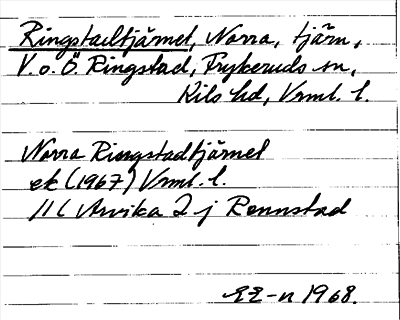 Ringstadtjärnet, Norra, tjärn,
V. o. Ö. Ringstad, Frykeruds sn,
Kils hd, Vrml. l.
Norra Ringstadtjärnet
ek (1967) Vrml. l.
11 C Arvika 2 j Rennstad
EE-n 1968.